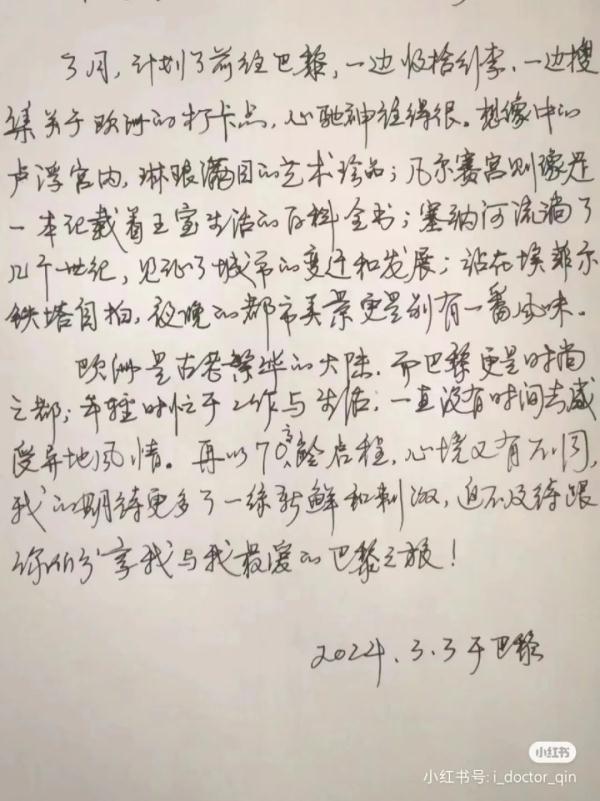 3月，计划了前往巴黎，一边收拾行李、一边搜
集关于欧洲的打卡点，心驰神往得很。想像中的
卢浮宫内，琳琅满目的艺术珍品；凡尔赛宫则像是
一本记载着王室生活的百科全书；塞纳河流淌了
几个世纪，见证了城市的变迁和发展；站在埃菲尔
铁塔自拍，夜晚的都市美景更是别有一番风味。
欧洲是古老繁华的大陆，而巴黎更是时尚
之都；年轻时忙于工作与生活，一直没有时间去感
受异地风情。再以70高龄启程，心境又有不同，
我的期待更多了一丝新鲜和刺激，迫不及待跟
你们分享我与我最爱的巴黎之旅！
2024.3.3于巴黎
小红书
小红书号: i_doctor_qin